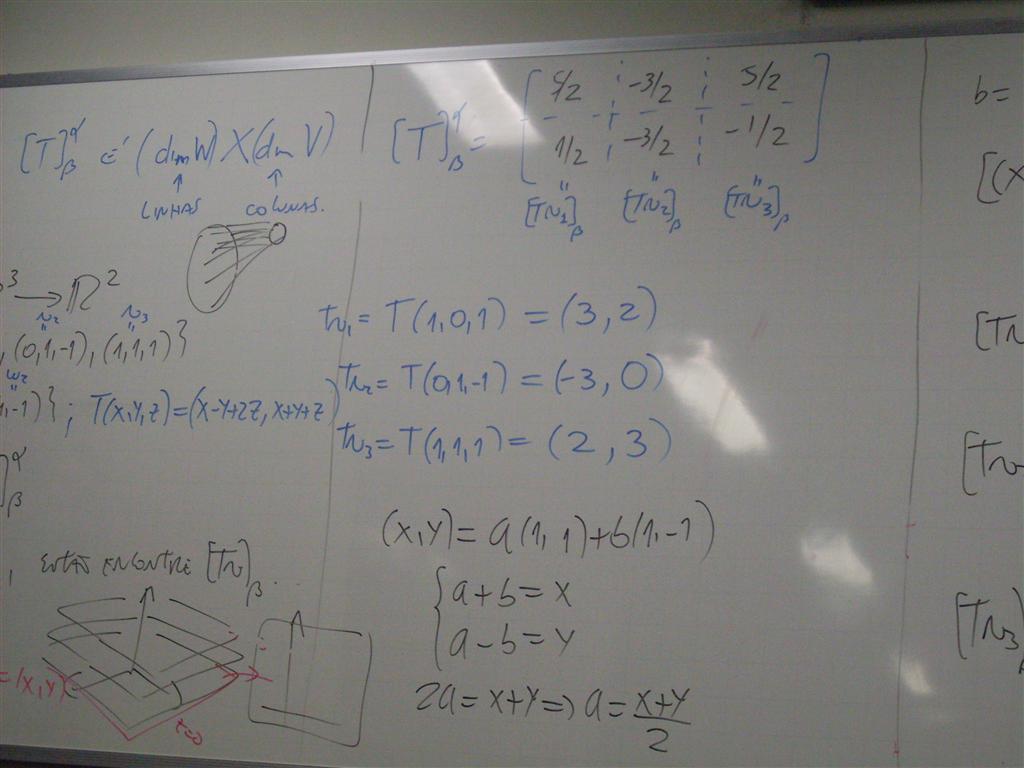 [T]β^α é (dim W) X (dim V)
↑ ↑
LINHAS COLUNAS.
³ → R²
v₂ v₃
, (0,1,-1), (1,1,1)}
w₂
1,-1)}; T(x,y,z)=(x-y+2z, x+y+z)
]β^α
, ENTÃO ENCONTRE [Tv]β..
=(x,y)
t=0
[T]β^α = [5/2 -3/2 5/2
1/2 -3/2 -1/2]
[Tv₁]β [Tv₂]β [Tv₃]β
Tv₁ = T(1,0,1) = (3,2)
Tv₂ = T(0,1,-1) = (-3,0)
Tv₃ = T(1,1,1) = (2,3)
(x,y) = a(1,1)+b(1,-1)
{a+b=x
a-b=y
2a=x+y ⇒ a = x+y/2
b=
[(x
[Tv
[Tv
[Tv₃]β